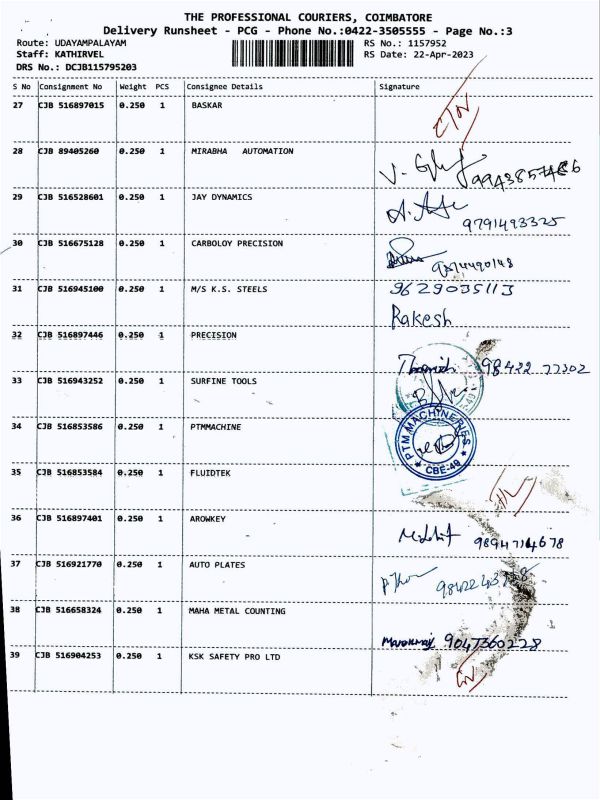 THE PROFESSIONAL COURIERS, COIMBATORE
Delivery Runsheet - PCG - Phone No.:0422-3505555 - Page No.:3
Route: UDAYAMPALAYAM RS No.: 1157952
Staff: KATHIRVEL RS Date: 22-Apr-2023
DRS No.: DCJB115795203
S No Consignment No Weight PCS Consignee Details Signature
27 CJB 516897015 0.250 1 BASKAR
28 CJB 89405260 0.250 1 MIRABHA AUTOMATION
29 CJB 516528601 0.250 1 JAY DYNAMICS
9791493325
30 CJB 516675128 0.250 1 CARBOLOY PRECISION
31 CJB 516945100 0.250 1 M/S K.S. STEELS 9629035113
Rakesh
32 CJB 516897446 0.250 1 PRECISION
98422 77302
33 CJB 516943252 0.250 1 SURFINE TOOLS
34 CJB 516853586 0.250 1 PTMMACHINE
PTM MACHINERIES
CBE-49
35 CJB 516853584 0.250 1 FLUIDTEK
36 CJB 516897401 0.250 1 AROWKEY
9894714678
37 CJB 516921770 0.250 1 AUTO PLATES
38 CJB 516658324 0.250 1 MAHA METAL COUNTING
9047360228
39 CJB 516904253 0.250 1 KSK SAFETY PRO LTD